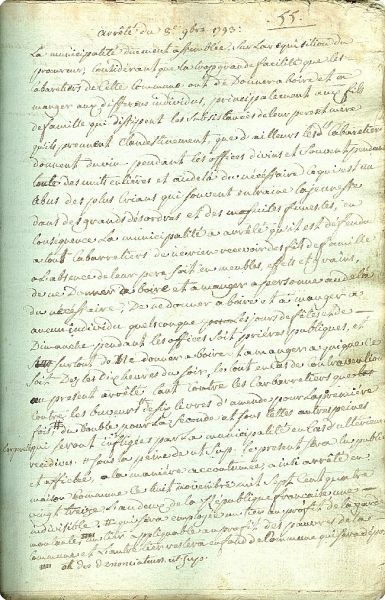 55.
arrêté du 8e 9bre 1793:
La municipalité duement assemblée, Sur la réquisition du
procureur, considérant que la trop grande facilité que les
Cabaretiers de cette commune ont de Donner a boire et a
manger aux differens individus, principalement aux fils
de famille qui dissipent les Subsistances de leurs peres et meres
qu'ils prennent Clandestinement, que d'ailleurs les Cabaretiers
donnent du vin pendant les offices divins et Souvent pendant
toutes des nuits entieres et audela du nécessaire ce qui est un
abus des plus criants qui souvent entraine la jeunesse
dans des grands désordres et des funestes, en
Consequence La municipalité a arrêté qu'il est défendu
a tout Cabarretiers de recevoir des fils de famille
a L'absence de leur pere, soit en meubles, effets et grains,
de ne Donner a boire et a manger a personne audela
du nécessaire; De ne donner a boire et a manger a
aucun individu quelconque jours de fêtes et de
Dimanche pendant les offices Soit prieres publiques, et
surtout de ne donner a boire et a manger a qui que ce
Soit Des les dix heures du Soir, le tout en cas de Contravention
au present arrêté, tant contre les Cabarretiers que
contre les buveurs de livres d'amende pour la premiere
fois, du double pour la Seconde et sous telles autres peines
qui seront infligées par la municipalité en cas d'ulterieures
recidives. Sous la peine de ut Sup. le present Sera lu publié
et affiché, a la maniere accoutumée, ainsi arrêté en
maison Commune le huit novembre mil Sept Cent quatre
vingt treize L'an deux de la République francaise une
indivisible, qui sera employée
applicable au profit des pauvres de la
commune et L'autre tiers
ou des denonciateurs ut Sup.